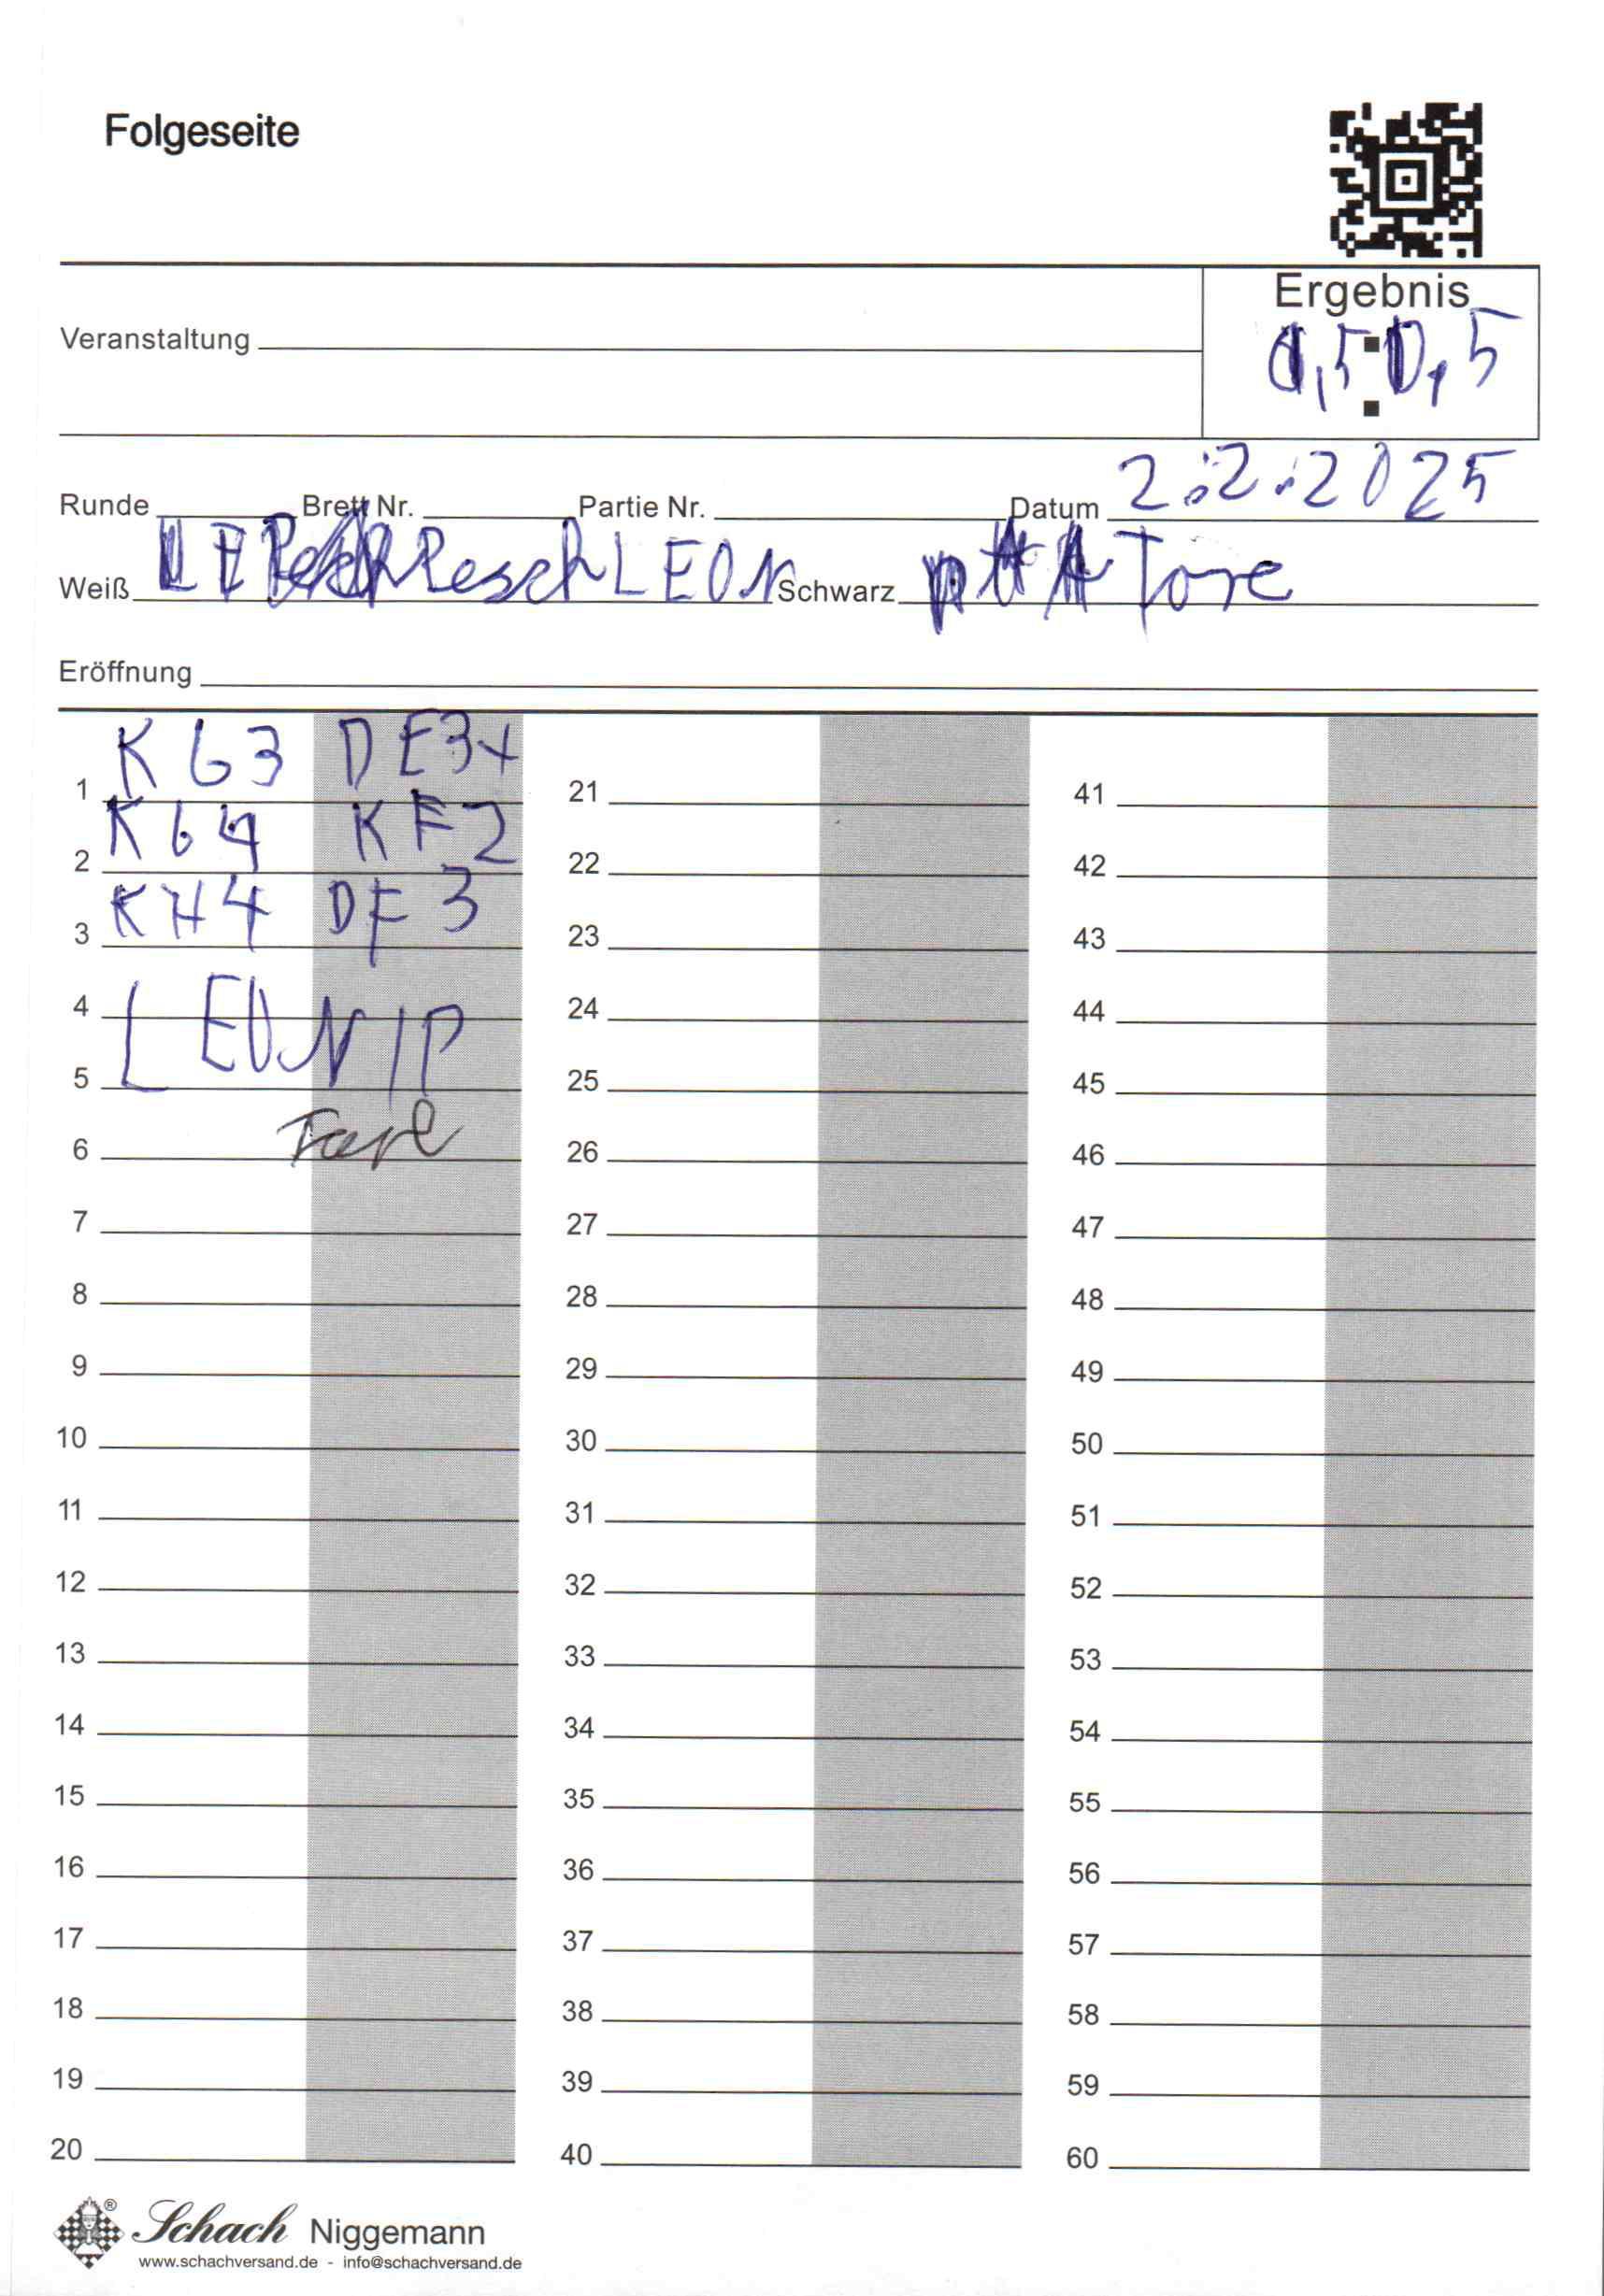 Folgeseite
Ergebnis
Veranstaltung
0,5 : 0,5
Runde Brett Nr. Partie Nr. Datum 2.2.2025
Weiß Resch LEON Schwarz Tore
Eröffnung
K G3 DE3+
1 21 41
K G4 KF2
2 22 42
KH4 DF3
3 23 43
4 24 44
LEON/P
5 25 45
6 26 46
7 27 47
8 28 48
9 29 49
10 30 50
11 31 51
12 32 52
13 33 53
14 34 54
15 35 55
16 36 56
17 37 57
18 38 58
19 39 59
20 40 60
® Schach Niggemann
www.schachversand.de - info@schachversand.de